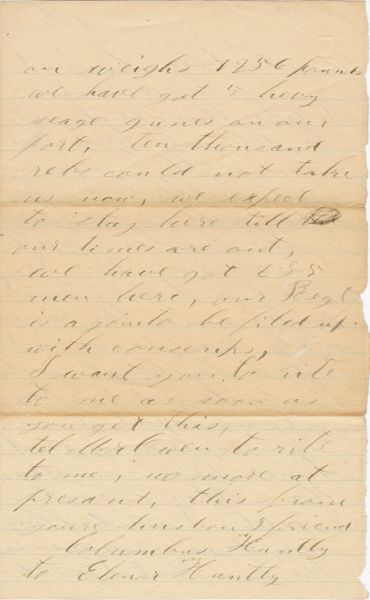 on weighs 1256 pounds
we have got 5 hevy
seage gunes on our
fort, ten thousand
rebs could not take
us now, we expect
to stay here till
our times are out,
we have got 255
men here, our Regt
is a goin to be fild up
with conscrips,
I want you to rite
to me as soon as
you get this,
tel Mor Owen to rite
to me, no more at
presant, this from
youre husbon & friend
Columbus Huntly
to Elenor Huntly